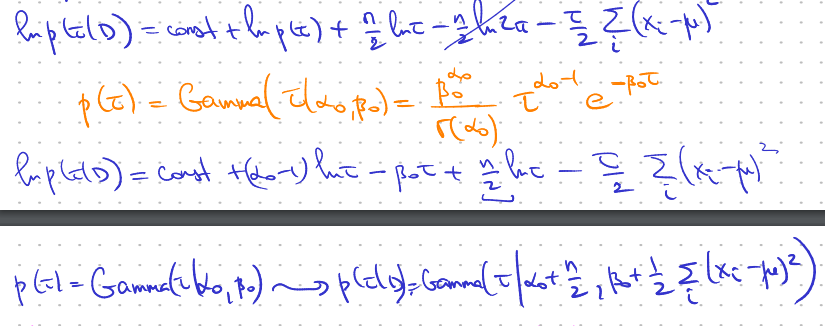 ln p(τ|D) = const + ln p(τ) + n/2 ln τ − n/2 ln 2π − τ/2 Σ_i (x_i − μ)²
p(τ) = Gamma(τ|α₀, β₀) = β₀^α₀ / Γ(α₀) τ^(α₀−1) e^(−β₀τ)
ln p(τ|D) = const + (α₀−1) ln τ − β₀τ + n/2 ln τ − τ/2 Σ_i (x_i − μ)²
p(τ) = Gamma(τ|α₀, β₀) ⟿ p(τ|D) = Gamma(τ|α₀ + n/2, β₀ + 1/2 Σ_i (x_i − μ)²)